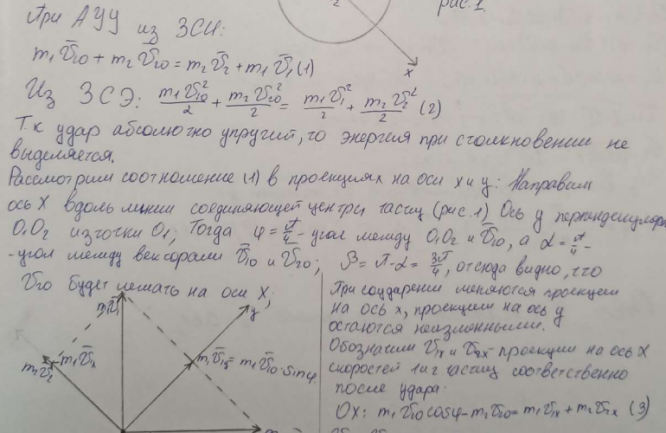 рис. 1.
2
x
При АУУ из ЗСИ:
m₁v̄₁₀ + m₂v̄₂₀ = m₂v̄₂ + m₁v̄₁ (1)
Из ЗСЭ: m₁v̄₁₀²/2 + m₂v̄₂₀²/2 = m₁v̄₁²/2 + m₂v̄₂²/2 (2)
Т.к удар абсолютно упругий, то энергия при столкновении не
выделяется.
Рассмотрим соотношение (1) в проекциях на оси x и y: Направим
ось X вдоль линии соединяющей центры частиц (рис. 1) Ось y перпендикулярно
O₁O₂ из точки O₁, Тогда φ = π/4 - угол между O₁O₂ и v̄₁₀, а α = π/4 -
- угол между векторами v̄₁₀ и v̄₂₀; β = π - α = 3π/4, отсюда видно, что
v̄₂₀ будет лежать на оси X;
m₁v̄₁
y
m₂v̄₂
m₁v̄₁ₓ
m₁v̄₁y = m₁v̄₁₀·sinφ
При соударении меняются проекции
на ось x, проекции на ось y
остаются неизменными.
Обозначим v̄₁ₓ и v̄₂ₓ - проекции на ось X
скоростей 1 и 2 частиц соответственно
после удара:
OX: m₁v̄₁₀cosφ - m₂v̄₂₀ = m₁v₁ₓ + m₂v̄₂ₓ (3)